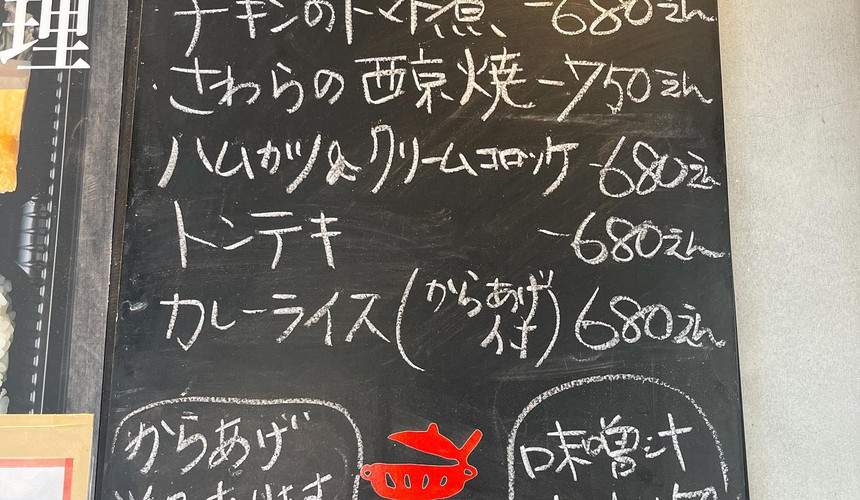 理
チキンのトマト煮 -680えん
さわらの西京焼 -750えん
ハムカツ&クリームコロッケ -680えん
トンテキ -680えん
カレーライス(からあげ付) 680えん
からあげ
味噌汁